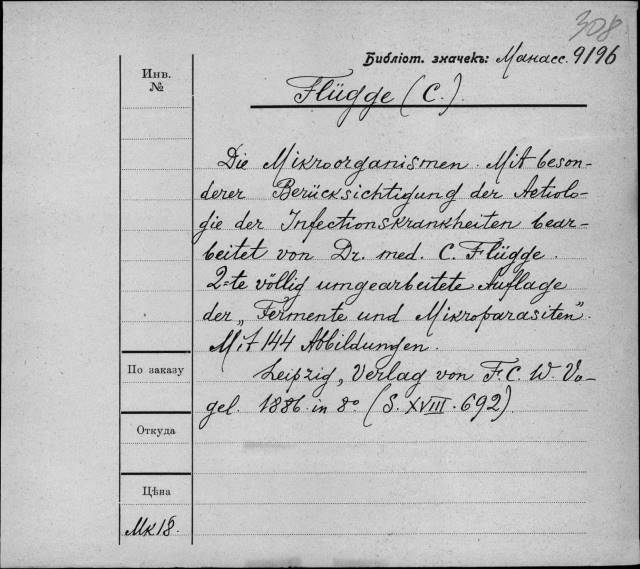 308
Библіот. значекъ: Манасс. 9196
Инв.
№
Flügge (C.).
Die Mikroorganismen. Mit beson-
derer Berücksichtigung der Aetiolo-
gie der Infectionskrankheiten bear-
beitet von Dr. med. C. Flügge.
2=te völlig umgearbeitete Auflage
der „Fermente und Mikroparasiten".
Mit 144 Abbildungen.
Leipzig, Verlag von F. C. W. Vo-
gel. 1886. in 8º (S. XVIII. 692).
По заказу
Откуда
Цѣна
Mk 18.